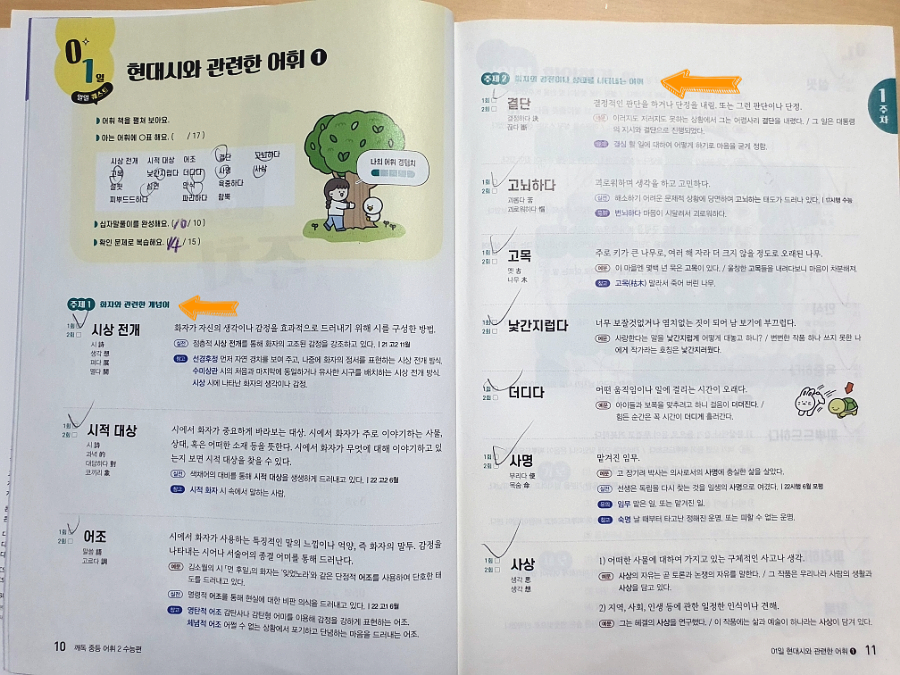 01일
말말 퀘스트
현대시와 관련한 어휘 ❶
어휘 책을 펼쳐 보아요.
아는 어휘에 ○표 해요. ( / 17 )
시상 전개 시적 대상 어조 결단 고뇌하다
고목 낯간지럽다 더디다 사명 사상
섬연 안식 육중하다
피부드드하다 파리하다 함묵
나의 어휘 경험치
십자말풀이를 완성해요. ( 10 / 10 )
확인 문제로 복습해요. ( 14 / 15 )
주제 1 화자와 관련한 개념어
1회
2회
시상 전개
시 詩
생각 想
펴다 展
열다 開
화자가 자신의 생각이나 감정을 효과적으로 드러내기 위해 시를 구성한 방법.
실전 점층적 시상 전개를 통해 화자의 고조된 감정을 강조하고 있다. | 21 고2 11월
참고 선경후정 먼저 자연 경치를 보여 주고, 나중에 화자의 정서를 표현하는 시상 전개 방식.
수미상관 시의 처음과 마지막에 동일하거나 유사한 시구를 배치하는 시상 전개 방식.
시상 시에 나타난 화자의 생각이나 감정.
1회
2회
시적 대상
시 詩
과녁 的
대답하다 對
코끼리 象
시에서 화자가 중요하게 바라보는 대상. 시에서 화자가 주로 이야기하는 사물,
상대, 혹은 어떠한 소재 등을 뜻한다. 시에서 화자가 무엇에 대해 이야기하고 있
는지 보면 시적 대상을 찾을 수 있다.
실전 색채어의 대비를 통해 시적 대상을 생생하게 드러내고 있다. | 22 고2 6월
참고 시적 화자 시 속에서 말하는 사람.
1회
2회
어조
말씀 語
고르다 調
시에서 화자가 사용하는 특징적인 말의 느낌이나 억양, 즉 화자의 말투. 감정을
나타내는 시어나 서술어의 종결 어미를 통해 드러난다.
예문 김소월의 시 '먼 후일'의 화자는 '잊었노라'와 같은 단정적 어조를 사용하여 단호한 태
도를 드러내고 있다.
실전 명령적 어조를 통해 현실에 대한 비판 의식을 드러내고 있다. | 22 고1 6월
참고 영탄적 어조 감탄사나 감탄형 어미를 이용해 감정을 강하게 표현하는 어조.
체념적 어조 어쩔 수 없는 상황에서 포기하고 단념하는 마음을 드러내는 어조.
10 깨독 중등 어휘 2 수능편
주제 2
1주차
1회
2회
결단
결정하다 決
끊다 斷
결정적인 판단을 하거나 단정을 내림. 또는 그런 판단이나 단정.
예문 이러지도 저러지도 못하는 상황에서 그는 어렵사리 결단을 내렸다. / 그 일은 대통령
의 지시와 결단으로 진행되었다.
결심 할 일에 대하여 어떻게 하기로 마음을 굳게 정함.
1회
2회
고뇌하다
괴롭다 苦
괴로워하다 惱
괴로워하며 생각을 하고 고민하다.
실전 해소하기 어려운 문제적 상황에 당면하여 고뇌하는 태도가 드러나 있다. | 17시행 수능
번뇌하다 마음이 시달려서 괴로워하다.
1회
2회
고목
옛 古
나무 木
주로 키가 큰 나무로, 여러 해 자라 더 크지 않을 정도로 오래된 나무.
예문 이 마을엔 몇백 년 묵은 고목이 있다. / 울창한 고목들을 내려다보니 마음이 차분해져.
참고 고목(枯木) 말라서 죽어 버린 나무.
1회
2회
낯간지럽다
너무 보잘것없거나 염치없는 짓이 되어 남 보기에 부끄럽다.
예문 사랑한다는 말을 낯간지럽게 어떻게 대놓고 하니? / 변변한 작품 하나 쓰지 못한 나
에게 작가라는 호칭은 낯간지러웠다.
1회
2회
더디다
어떤 움직임이나 일에 걸리는 시간이 오래다.
예문 아이들과 보폭을 맞추려고 하니 걸음이 더뎌진다. /
힘든 순간은 꼭 시간이 더디게 흘러간다.
1회
2회
사명
부리다 使
목숨 命
맡겨진 임무.
예문 고 장기려 박사는 의사로서의 사명에 충실한 삶을 살았다.
실전 선생은 독립을 다시 찾는 것을 일생의 사명으로 여겼다. | 22시행 6월 모평
임무 맡은 일. 또는 맡겨진 일.
참고 숙명 날 때부터 타고난 정해진 운명. 또는 피할 수 없는 운명.
1회
2회
사상
생각 思
생각 想
1) 어떠한 사물에 대하여 가지고 있는 구체적인 사고나 생각.
예문 사상의 자유는 곧 토론과 논쟁의 자유를 말한다. / 그 작품은 우리나라 사람의 생활과
사상을 담고 있다.
2) 지역, 사회, 인생 등에 관한 일정한 인식이나 견해.
예문 그는 헤겔의 사상을 연구했다. / 이 작품에는 삶과 예술이 하나라는 사상이 담겨 있다.
01일 현대시와 관련한 어휘 ❶ 11